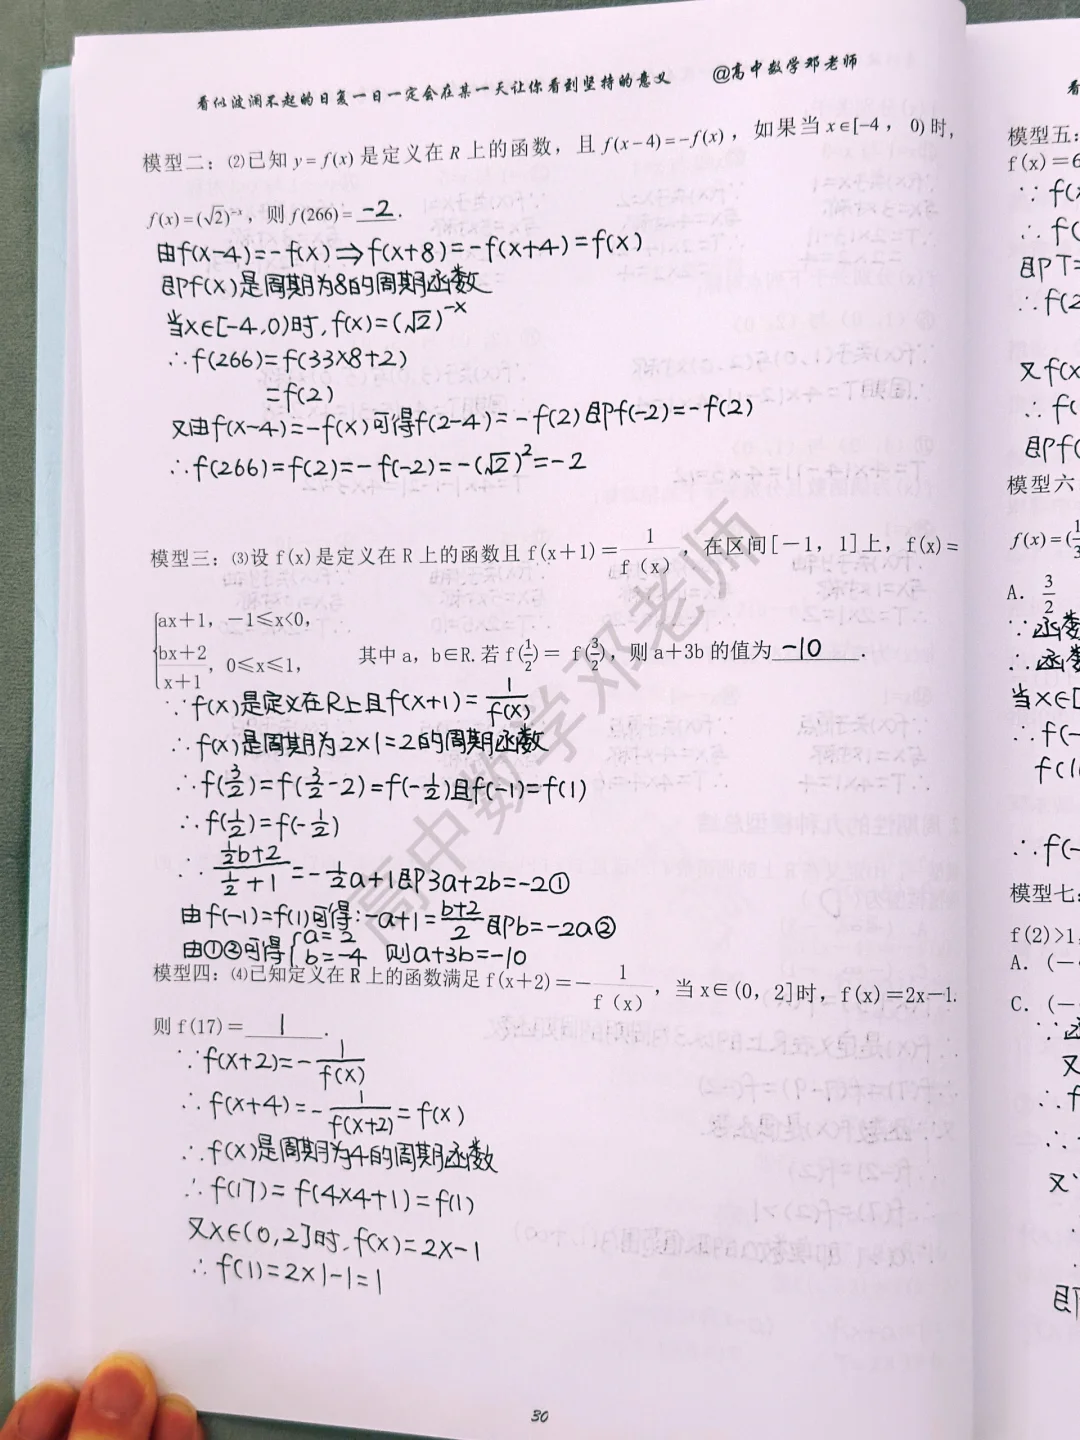 看似波澜不起的日复一日一定会在某一天让你看到坚持的意义 @高中数学邓老师
模型二：⑵已知 y=f(x) 是定义在 R 上的函数，且 f(x-4)=-f(x)，如果当 x∈[-4，0)时，
f(x)=(√2)^{-x}，则 f(266)= -2 .
由f(x-4)=-f(x)⇒f(x+8)=-f(x+4)=f(x)
即f(x)是周期为8的周期函数
当x∈[-4,0)时,f(x)=(√2)^{-x}
∴f(266)=f(33×8+2)
=f(2)
又由f(x-4)=-f(x)可得f(2-4)=-f(2)即f(-2)=-f(2)
∴f(266)=f(2)=-f(-2)=-(√2)²=-2
模型三：⑶设 f(x)是定义在 R 上的函数且 f(x+1)=1/f(x)，在区间[-1，1]上，f(x)=
{ax+1，-1≤x<0，
(bx+2)/(x+1)，0≤x≤1， 其中 a，b∈R.若 f(1/2)= f(3/2)，则 a+3b 的值为 -10 .
∵f(x)是定义在R上且f(x+1)=1/f(x)
∴f(x)是周期为2×1=2的周期函数
∴f(3/2)=f(3/2-2)=f(-1/2)且f(-1)=f(1)
∴f(1/2)=f(-1/2)
∴(1/2b+2)/(1/2+1)=-1/2a+1即3a+2b=-2①
由f(-1)=f(1)可得:-a+1=(b+2)/2即b=-2a②
由①②可得{a=2 b=-4 则a+3b=-10
模型四：⑷已知定义在 R 上的函数满足 f(x+2)=-1/f(x)，当 x∈(0，2]时，f(x)=2x-1.
则 f(17)= 1 .
∵f(x+2)=-1/f(x)
∴f(x+4)=-1/f(x+2)=f(x)
∴f(x)是周期为4的周期函数
∴f(17)=f(4×4+1)=f(1)
又x∈(0,2]时,f(x)=2x-1
∴f(1)=2×1-1=1
30
高中数学邓老师
模型五：
f(x)=6
即T=
又f(x
模型六
f(x)=(1/3
A. 3/2
∵函数
∴函数
当x∈[
∴f(-
f(1
∴f(-
模型七：
f(2)>1,
A.(-
C.(-